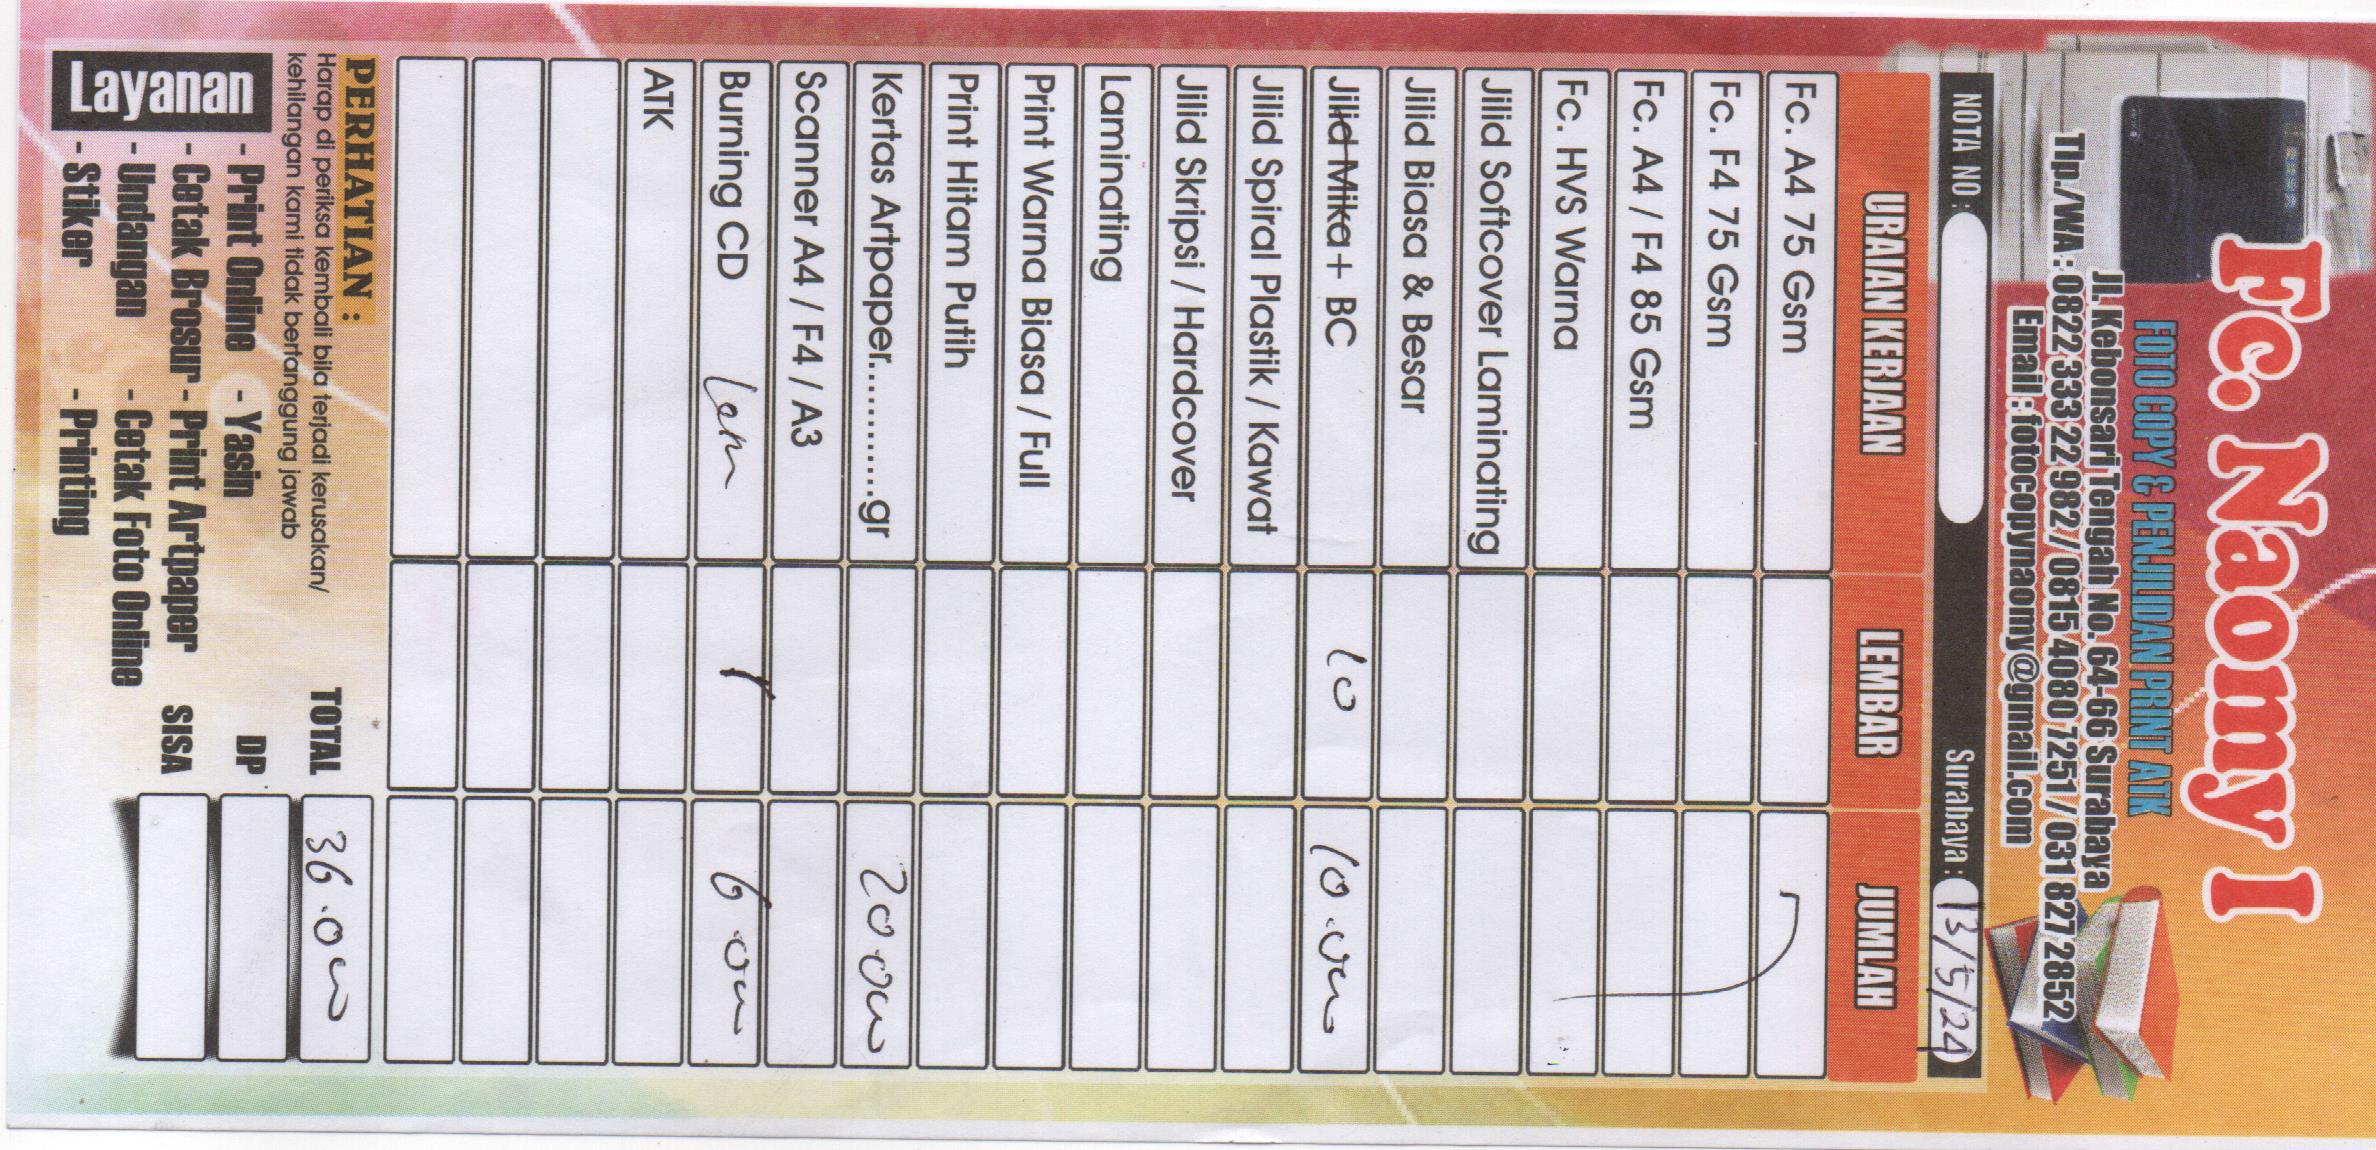 Fc. Naomy I
FOTO COPY & PENJILIDAN PRINT ATK
Jl. Kebonsari Tengah No. 64-66 Surabaya
Tlp./WA : 0822 333 22 982 / 0815 4080 7251 / 031 827 2852
Email : fotocopynaomy@gmail.com
NOTA NO : Surabaya : 13/5/24
URAIAN KERJAAN LEMBAR JUMLAH
Fc. A4 75 Gsm
Fc. F4 75 Gsm
Fc. A4 / F4 85 Gsm
Fc. HVS Warna
Jilid Softcover Laminating
Jilid Biasa & Besar
Jilid Mika + BC 10 10.000
Jilid Spiral Plastik / Kawat
Jilid Skripsi / Hardcover
Laminating
Print Warna Biasa / Full
Print Hitam Putih
Kertas Artpaper............gr 20.000
Scanner A4 / F4 / A3
Burning CD Lem 1 6.000
ATK
PERHATIAN :
Harap di periksa kembali bila terjadi kerusakan/
kehilangan kami tidak bertanggung jawab
TOTAL 36.000
DP
SISA
Layanan
- Print Online - Yasin
- Cetak Brosur - Print Artpaper
- Undangan - Cetak Foto Online
- Stiker - Printing